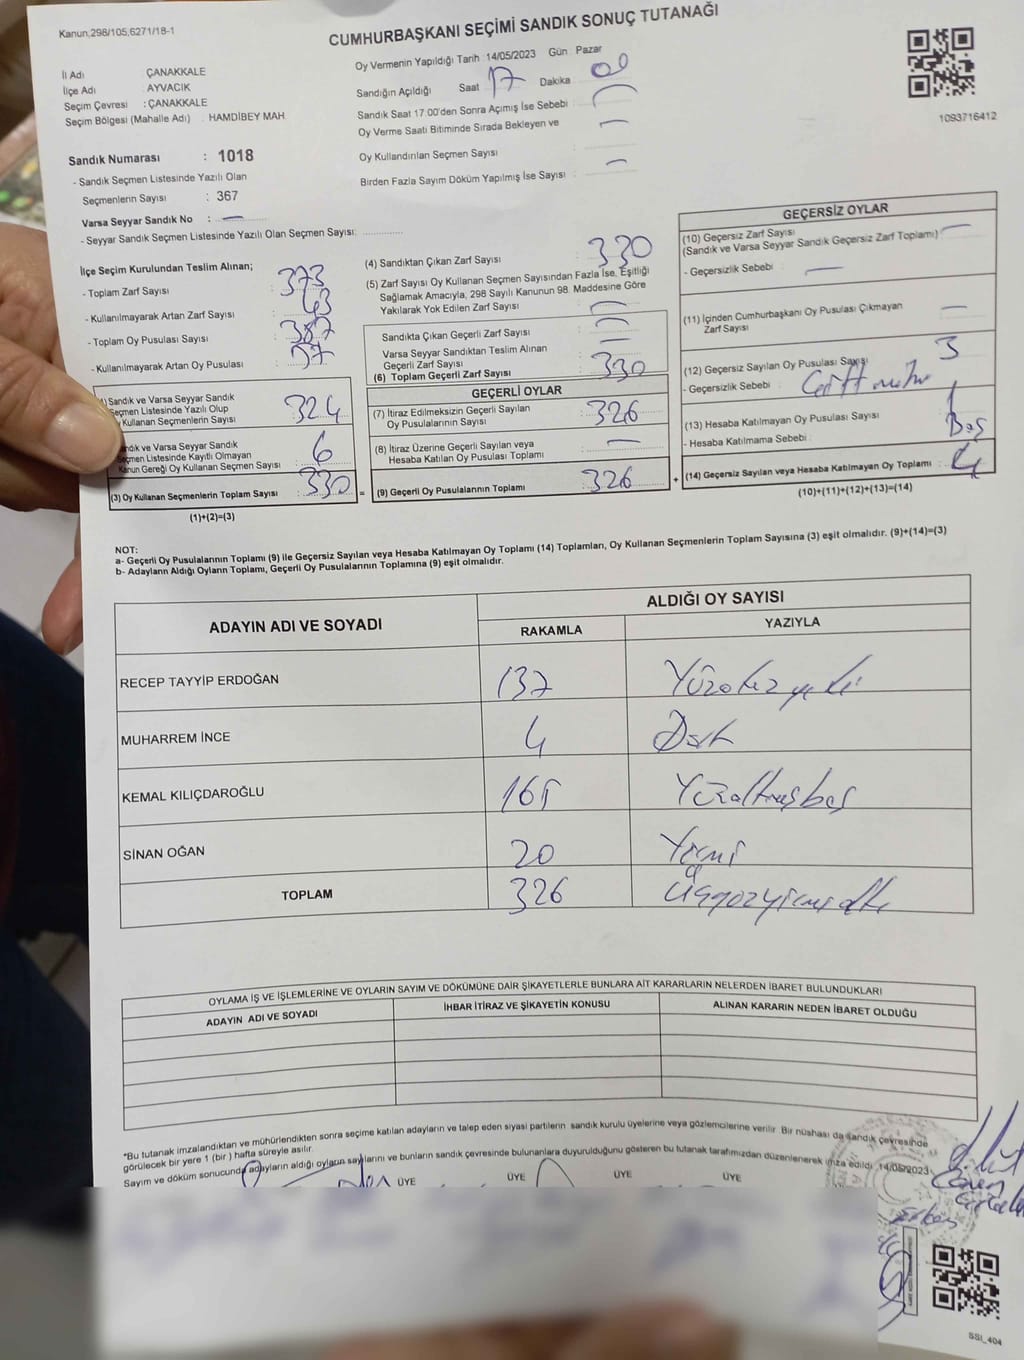 Kanun,298/105,6271/18-1
CUMHURBAŞKANI SEÇİMİ SANDIK SONUÇ TUTANAĞI
İl Adı ÇANAKKALE
İlçe Adı AYVACIK
Seçim Çevresi : ÇANAKKALE
Seçim Bölgesi (Mahalle Adı) HAMDİBEY MAH
Oy Vermenin Yapıldığı Tarih 14/05/2023 Gün Pazar
Sandığın Açıldığı Saat 17 Dakika 00
Sandık Saat 17:00'den Sonra Açımış İse Sebebi : —
Oy Verme Saati Bitiminde Sırada Bekleyen ve
Oy Kullandırılan Seçmen Sayısı —
Birden Fazla Sayım Döküm Yapılmış İse Sayısı : —
1093716412
Sandık Numarası : 1018
- Sandık Seçmen Listesinde Yazılı Olan
Seçmenlerin Sayısı : 367
Varsa Seyyar Sandık No : —
- Seyyar Sandık Seçmen Listesinde Yazılı Olan Seçmen Sayısı:
İlçe Seçim Kurulundan Teslim Alınan;
- Toplam Zarf Sayısı : 373
- Kullanılmayarak Artan Zarf Sayısı : 43
- Toplam Oy Pusulası Sayısı : 387
- Kullanılmayarak Artan Oy Pusulası : 57
Sandık ve Varsa Seyyar Sandık
Seçmen Listesinde Yazılı Olup
Kullanan Seçmenlerin Sayısı : 324
ve Varsa Seyyar Sandık
Seçmen Listesinde Kayıtlı Olmayan
Kanun Gereği Oy Kullanan Seçmen Sayısı : 6
(3) Oy Kullanan Seçmenlerin Toplam Sayısı : 330
(1)+(2)=(3)
(4) Sandıktan Çıkan Zarf Sayısı : 330
(5) Zarf Sayısı Oy Kullanan Seçmen Sayısından Fazla İse, Eşitliği
Sağlamak Amacıyla, 298 Sayılı Kanunun 98. Maddesine Göre
Yakılarak Yok Edilen Zarf Sayısı : —
Sandıkta Çıkan Geçerli Zarf Sayısı : —
Varsa Seyyar Sandıktan Teslim Alınan
Geçerli Zarf Sayısı : —
(6) Toplam Geçerli Zarf Sayısı : 330
GEÇERLİ OYLAR
(7) İtiraz Edilmeksizin Geçerli Sayılan
Oy Pusulalarının Sayısı : 326
(8) İtiraz Üzerine Geçerli Sayılan veya
Hesaba Katılan Oy Pusulası Toplamı : —
= (9) Geçerli Oy Pusulalarının Toplamı : 326
GEÇERSİZ OYLAR
(10) Geçersiz Zarf Sayısı
(Sandık ve Varsa Seyyar Sandık Geçersiz Zarf Toplamı) : —
- Geçersizlik Sebebi : —
(11) İçinden Cumhurbaşkanı Oy Pusulası Çıkmayan
Zarf Sayısı : —
(12) Geçersiz Sayılan Oy Pusulası Sayısı 3
- Geçersizlik Sebebi : Çift mühür
(13) Hesaba Katılmayan Oy Pusulası Sayısı : 1
- Hesaba Katılmama Sebebi : Boş
+ (14) Geçersiz Sayılan veya Hesaba Katılmayan Oy Toplamı : 4
(10)+(11)+(12)+(13)=(14)
NOT:
a- Geçerli Oy Pusulalarının Toplamı (9) ile Geçersiz Sayılan veya Hesaba Katılmayan Oy Toplamı (14) Toplamları, Oy Kullanan Seçmenlerin Toplam Sayısına (3) eşit olmalıdır. (9)+(14)=(3)
b- Adayların Aldığı Oyların Toplamı, Geçerli Oy Pusulalarının Toplamına (9) eşit olmalıdır.
ADAYIN ADI VE SOYADI ALDIĞI OY SAYISI
RAKAMLA YAZIYLA
RECEP TAYYİP ERDOĞAN 137 Yüzotuzyedi
MUHARREM İNCE 4 Dört
KEMAL KILIÇDAROĞLU 165 Yüzaltmışbeş
SİNAN OĞAN 20 Yirmi
TOPLAM 326 Üçyüzyirmialtı
OYLAMA İŞ VE İŞLEMLERİNE VE OYLARIN SAYIM VE DÖKÜMÜNE DAİR ŞİKAYETLERLE BUNLARA AİT KARARLARIN NELERDEN İBARET BULUNDUKLARI
ADAYIN ADI VE SOYADI İHBAR İTİRAZ VE ŞİKAYETİN KONUSU ALINAN KARARIN NEDEN İBARET OLDUĞU
*Bu tutanak imzalandıktan ve mühürlendikten sonra seçime katılan adayların ve talep eden siyasi partilerin sandık kurulu üyelerine veya gözlemcilerine verilir. Bir nüshası da sandık çevresinde
görülecek bir yere 1 (bir) hafta süreyle asılır.
Sayım ve döküm sonucunda adayların aldığı oyların sayılarını ve bunların sandık çevresinde bulunanlara duyurulduğunu gösteren bu tutanak tarafımızdan düzenlenerek imza edildi. 14/05/2023
ÜYE ÜYE ÜYE ÜYE
SSİ_404